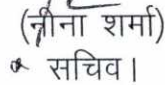 (नीना शर्मा)
सचिव।